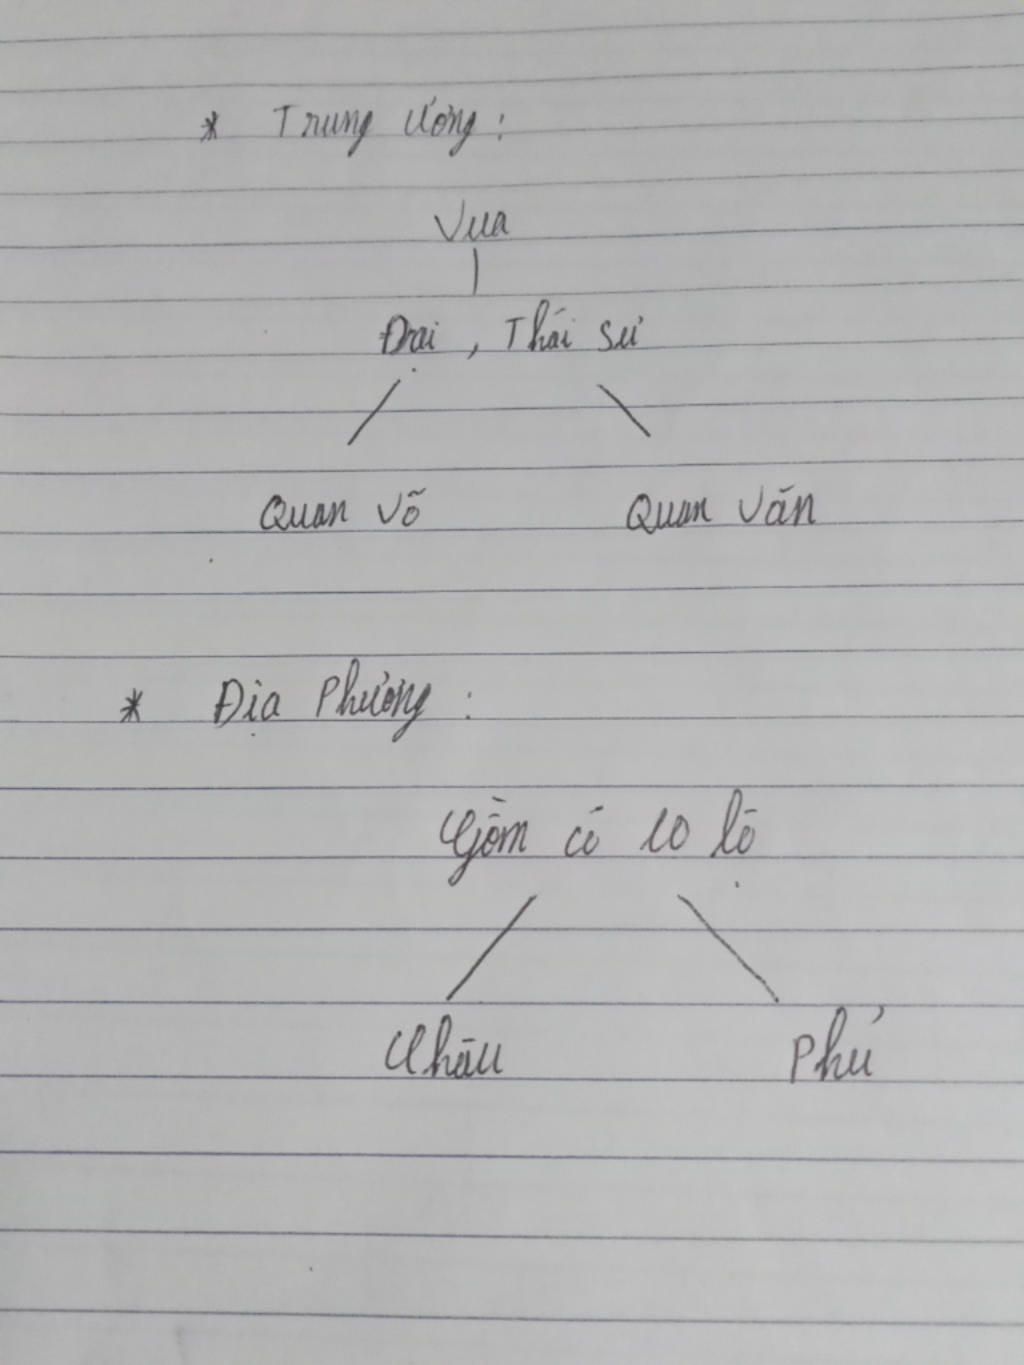 * Trung ương :
Vua
Đại , Thái sư
Quan võ Quan văn
* Địa Phương :
Gồm có 10 lộ
Châu Phủ